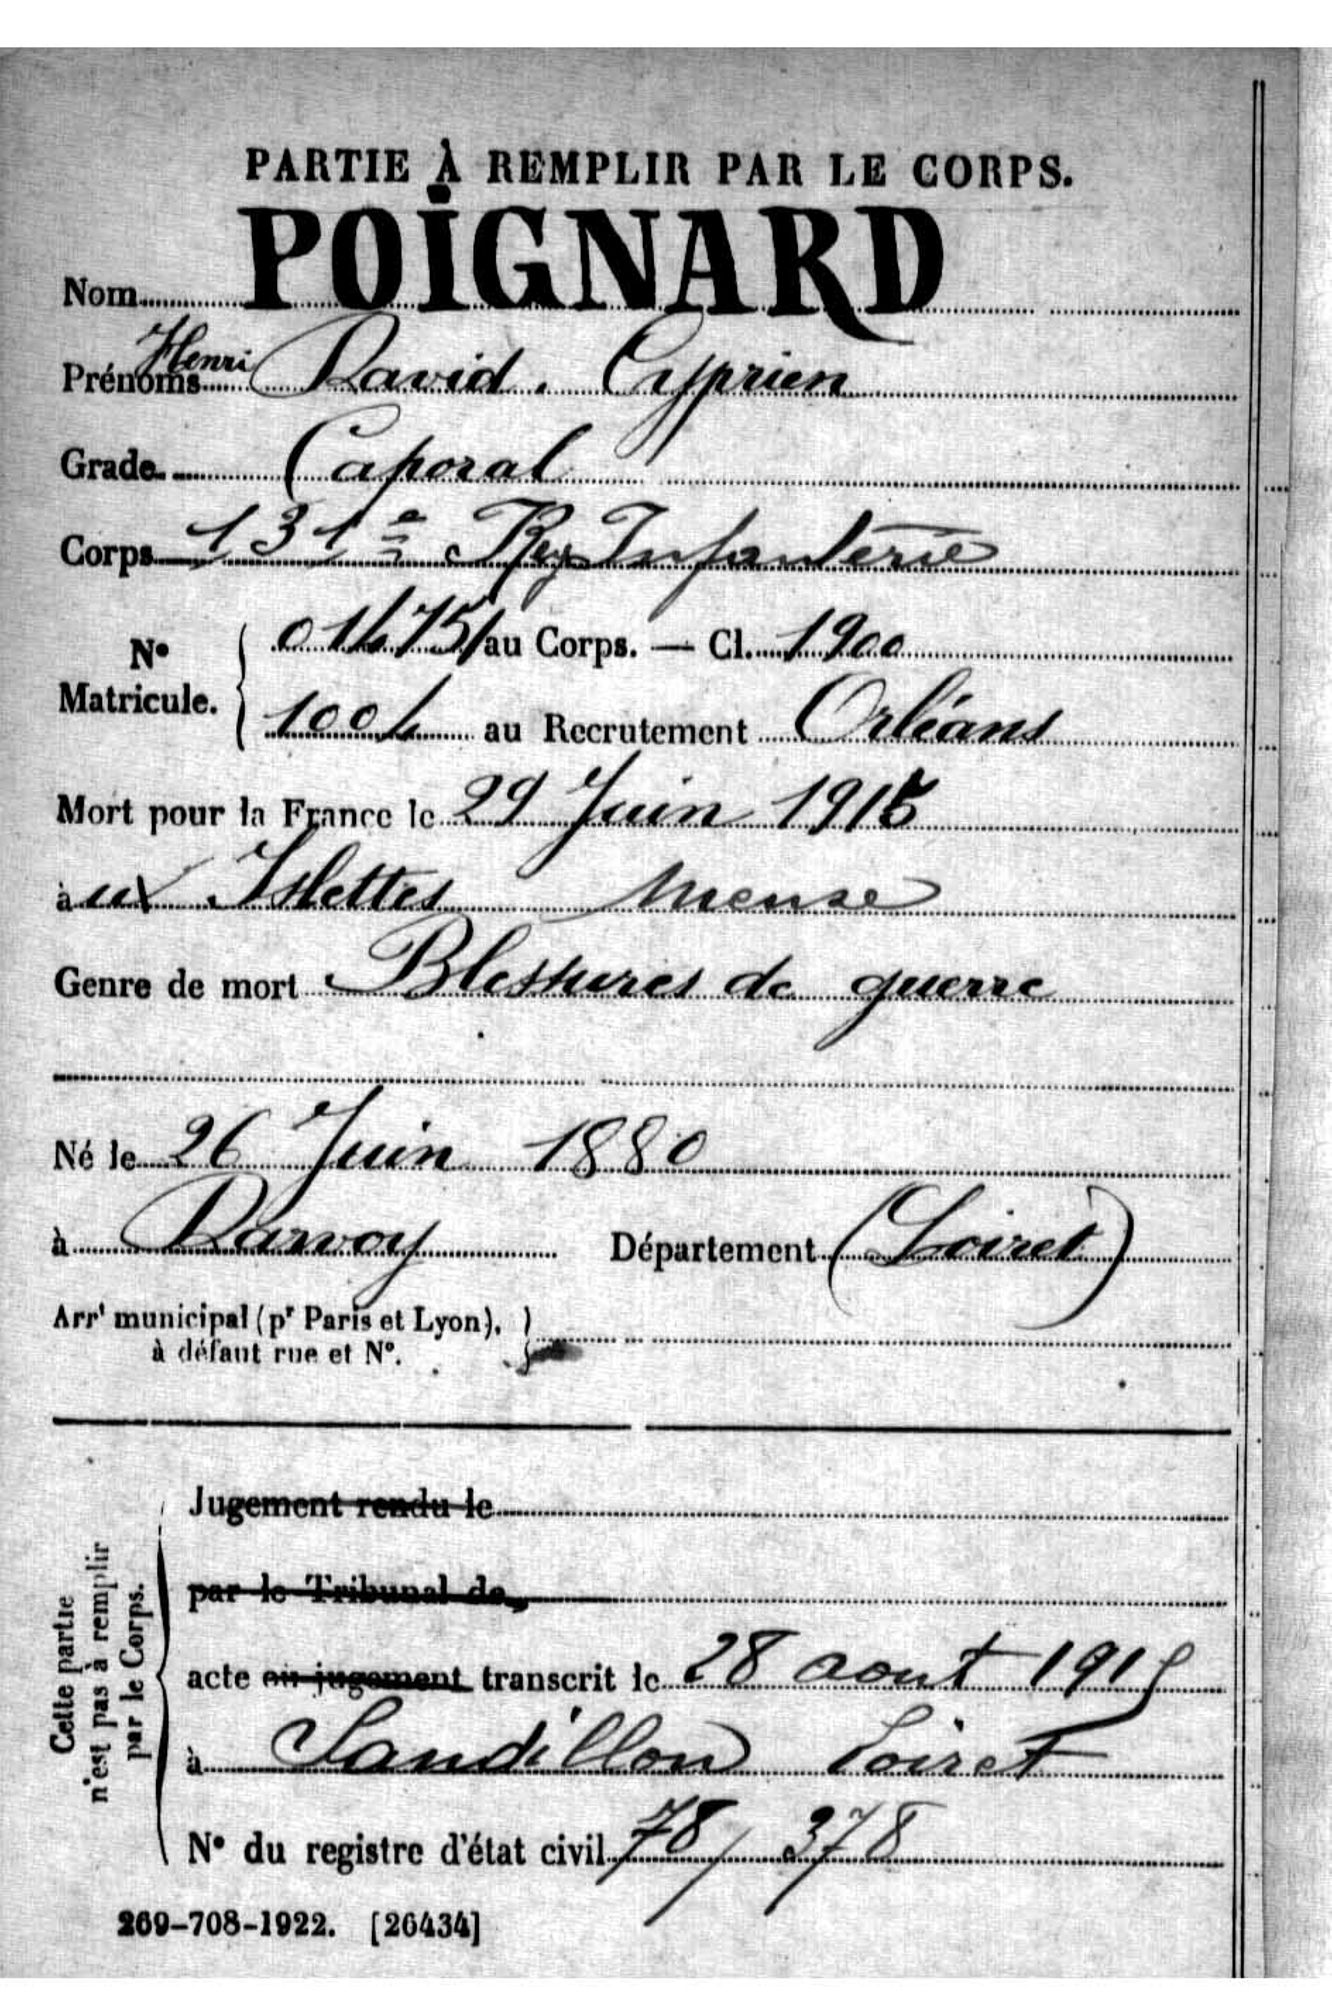 PARTIE À REMPLIR PAR LE CORPS.
Nom POIGNARD
Prénoms Henri David. Cyprien
Grade Caporal
Corps 131e Reg Infanterie
N° Matricule. 01475 au Corps. — Cl. 1900
1004 au Recrutement Orléans
Mort pour la France le 29 Juin 1915
à ux Islettes Meuse
Genre de mort Blessures de guerre
Né le 26 Juin 1880
à Darvoy Département (Loiret)
Arrt municipal (pr Paris et Lyon),
à défaut rue et N°.
Cette partie
n'est pas à remplir
par le Corps.
Jugement rendu le
par le Tribunal de
acte ou jugement transcrit le 28 aout 1915
à Sandillon Loiret
N° du registre d'état civil 78/378
269-708-1922. [26434]